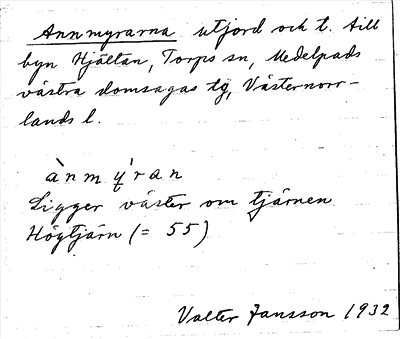 Annmyrarna utjord och t. till
byn Hjältan, Torps sn, Medelpads
västra domsagas tg, Västernorr-
lands l.
ànmý̨ran
Ligger väster om tjärnen
Högtjärn (= 55)
Valter Jansson 1932